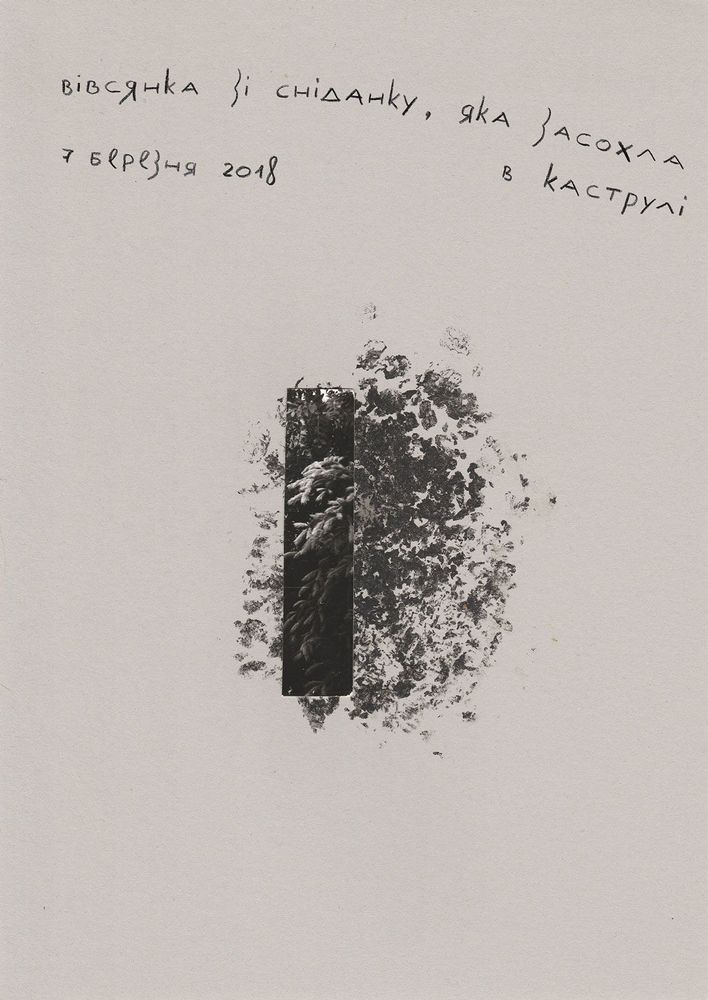 вівсянка зі сніданку, яка засохла
в каструлі
7 березня 2018